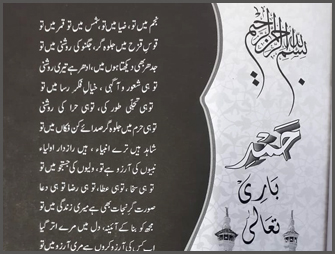 بسم اللہ الرحمن الرحیم
حمد
باری
تعالیٰ
نجم میں تو، ضیا میں تو، شمس میں تو قمر میں تو
قوس قزح میں جلوہ گر، جگنو کی روشنی میں تو
جدھر بھی دیکھتا ہوں میں، ادھر ہے تیری روشنی
تو ہی شعور و آگہی، خیال فکر رسا میں تو
تو ہی تجلی طور کی، تو ہی حرا کی روشنی
تو ہی حرم میں جلوہ گر صدائے کن فکاں میں تو
شاہد ہیں ترے انبیاء، ہیں رازدار اولیاء
نبیوں کی آرزو ہے تو، ولیوں کی جستجو میں تو
تو ہی سخا، تو ہی عطا، تو ہی رضا تو ہی دعا
صورت گر نجات بھی ہے میری زندگی میں تو
مجھ کو بنا کے آئینہ، دل میں مرے اتر گیا
اب کس کی آرزو کروں ہے مری آرزو میں تو